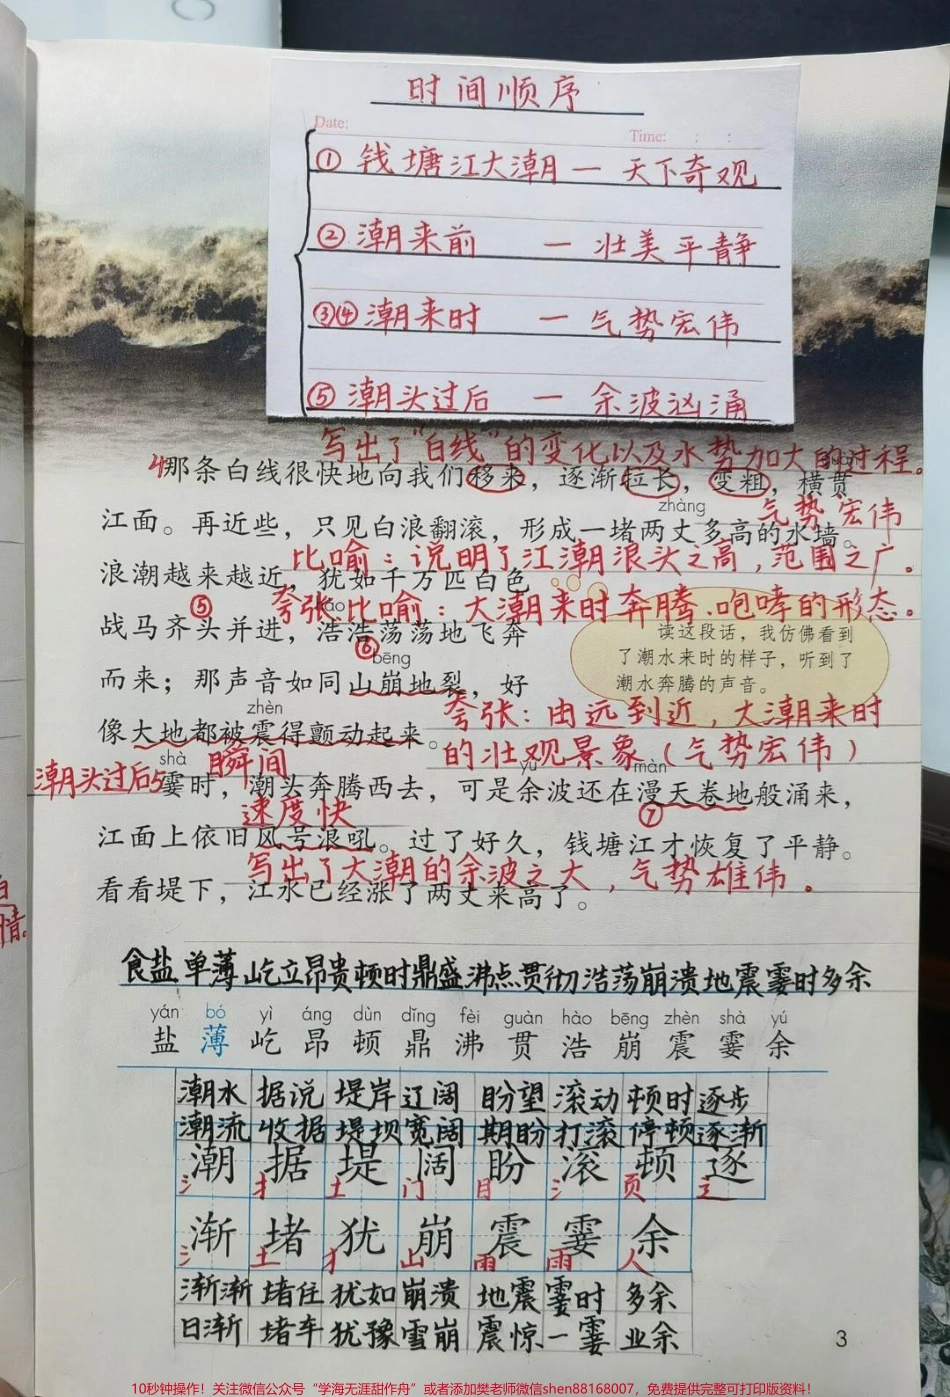 时间顺序
Date:
Time: : :
① 钱塘江大潮 — 天下奇观
② 潮来前 — 壮美平静
③④ 潮来时 — 气势宏伟
⑤ 潮头过后 — 余波汹涌
写出了“白线”的变化以及水势加大的过程。
4那条白线很快地向我们移来，逐渐拉长，变粗，横贯
zhàng 气势宏伟
江面。再近些，只见白浪翻滚，形成一堵两丈多高的水墙。
比喻：说明了江潮浪头之高，范围之广。
浪潮越来越近，犹如千万匹白色
⑤ 夸张 比喻：大潮来时奔腾、咆哮的形态。
战马齐头并进，浩浩荡荡地飞奔
读这段话，我仿佛看到
了潮水来时的样子，听到了
潮水奔腾的声音。
⑥ bēng
而来；那声音如同山崩地裂，好
zhèn 夸张：由远到近，大潮来时
像大地都被震得颤动起来。
的壮观景象（气势宏伟）
潮头过后5 shà 瞬间 yú màn
霎时，潮头奔腾西去，可是余波还在漫天卷地般涌来，
速度快 ⑦
江面上依旧风号浪吼。过了好久，钱塘江才恢复了平静。
写出了大潮的余波之大，气势雄伟。
看看堤下，江水已经涨了两丈来高了。
食盐 单薄 屹立 昂贵 顿时 鼎盛 沸点 贯彻 浩荡 崩溃 地震 霎时 多余
yán bó yì áng dùn dǐng fèi guàn hào bēng zhèn shà yú
盐 薄 屹 昂 顿 鼎 沸 贯 浩 崩 震 霎 余
潮水 据说 堤岸 辽阔 盼望 滚动 顿时 逐步
潮流 收据 堤坝 宽阔 期盼 打滚 停顿 逐渐
潮 据 堤 阔 盼 滚 顿 逐
氵 扌 土 门 目 氵 页 辶
渐 堵 犹 崩 震 霎 余
氵 土 犭 山 雨 雨 人
渐渐 堵住 犹如 崩溃 地震 霎时 多余
日渐 堵车 犹豫 雪崩 震惊 一霎 业余
3
10秒钟操作！关注微信公众号“学海无涯甜作舟”或者添加樊老师微信shen88168007，免费提供完整可打印版资料！